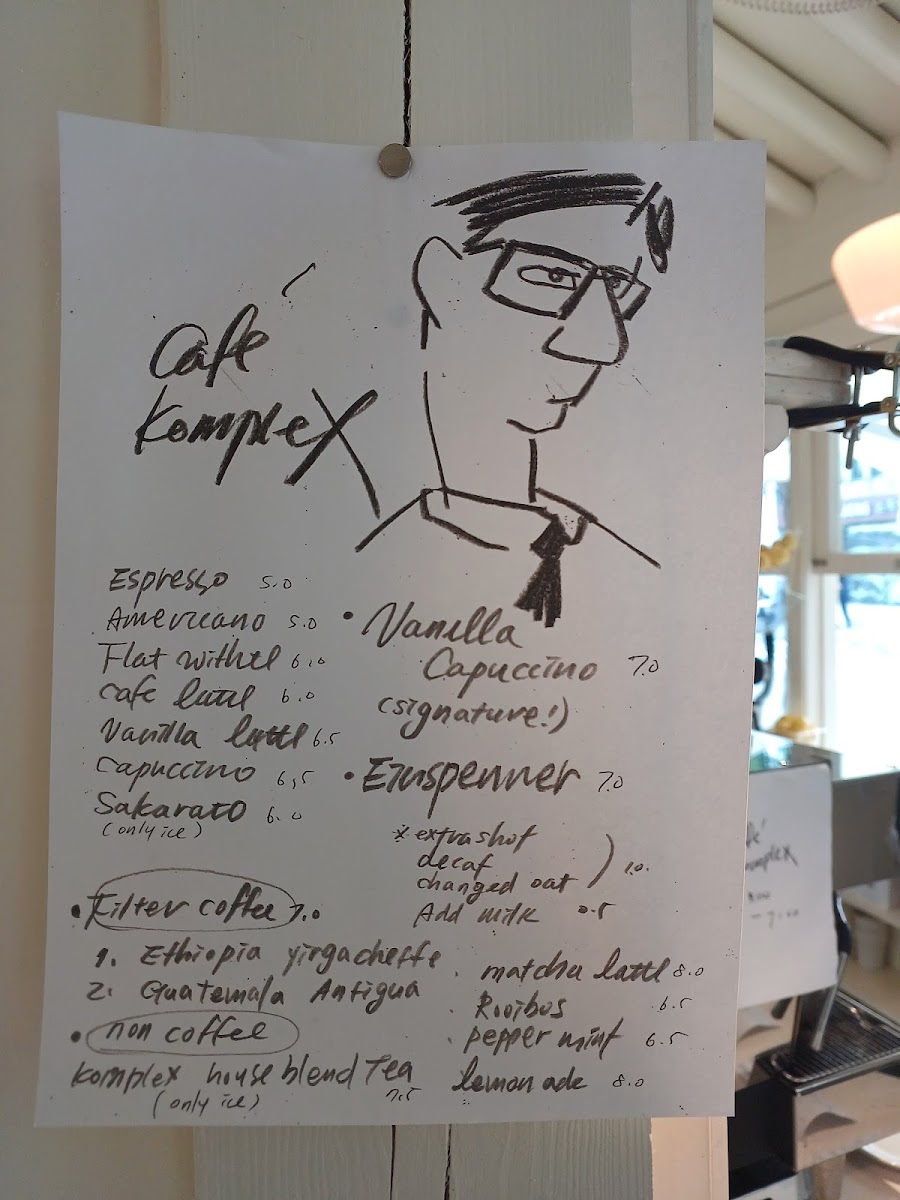 Café
KompleX
Espresso 5.0
Americano 5.0
Flat withte 6.0
cafe latte 6.0
Vanilla latte 6.5
capuccino 6,5
Sakarato 6.0
(only ice)
• Vanilla
Capuccino 7.0
(signature!)
• Einspenner 7.0
※ extra shot
decaf
changed oat ) 1.0.
Add milk 0.5
• Filter coffee 7.0
1. Ethiopia yirgacheffe
2. Guatemala Antigua
• non coffee
Komplex house blend Tea
(only ice) 7.5
· matcha latte 8.0
· Rooibos 6.5
· pepper mint 6.5
lemon ade 8.0